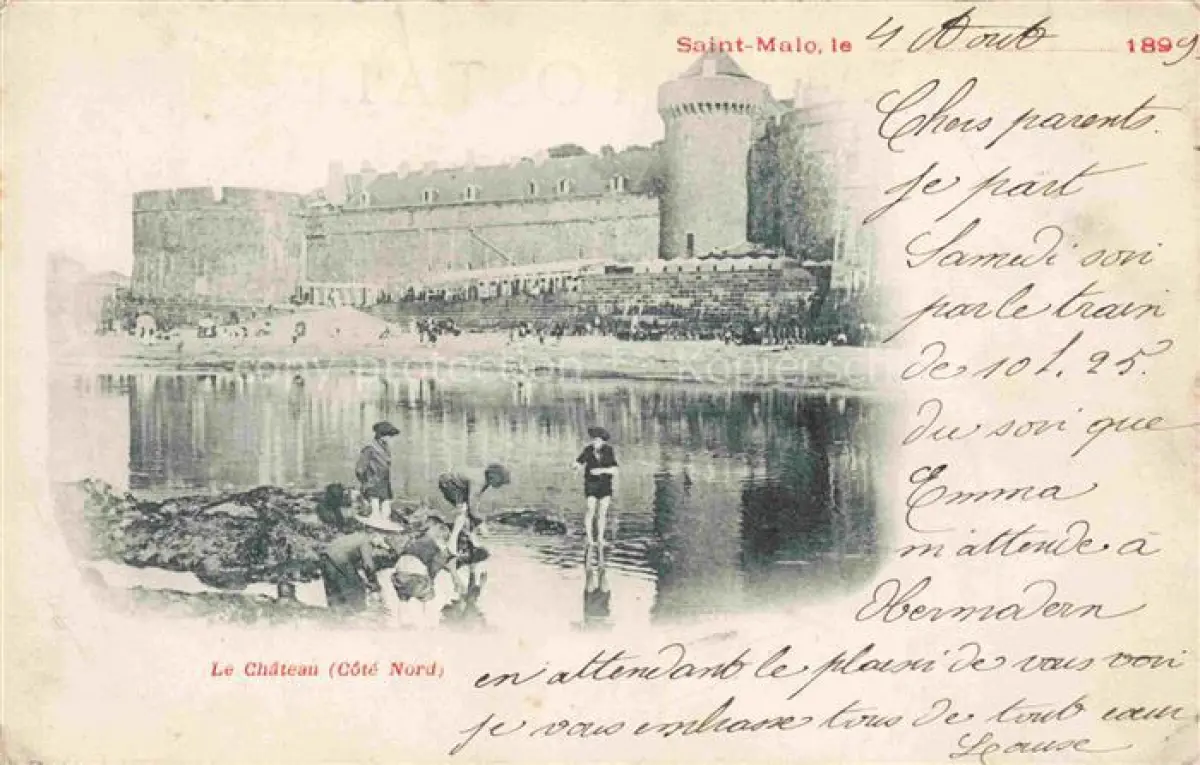 Saint-Malo, le 4 Aout 1899
Chers parents.
je part
Samedi soir
par le train
de 10 h. 25.
du soir que
Emma
m'attende à
Obermadern
en attendant le plaisir de vous voir
je vous embrasse tous de tout cœur
Louise
Le Château (Côté Nord)
copy protection Kopiersch